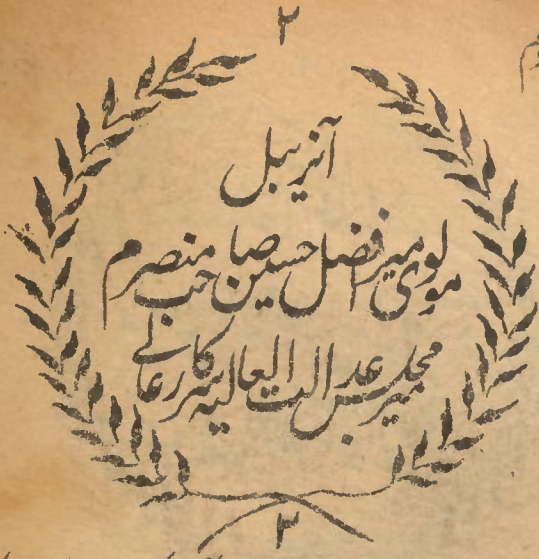 ۲
آنریبل
مولوی میر افضل حسین صاحب منصرم
میر مجلس عدالت العالیہ سرکار عالے
۲